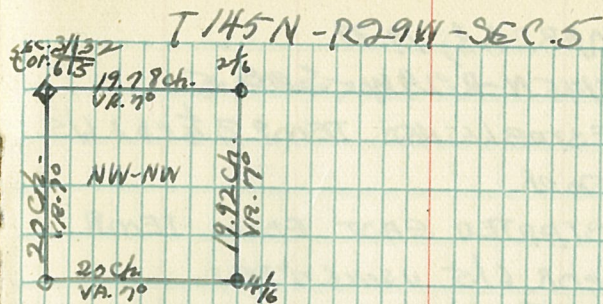 T145N-R29W-SEC.5
SEC. 31|32
COR. 6|5
19.78 Ch.
VR. 7°
2/16
NW-NW
20 Ch.
VR. 7°
19.92 Ch.
VR. 7°
20 Ch.
VA. 7°
4/16